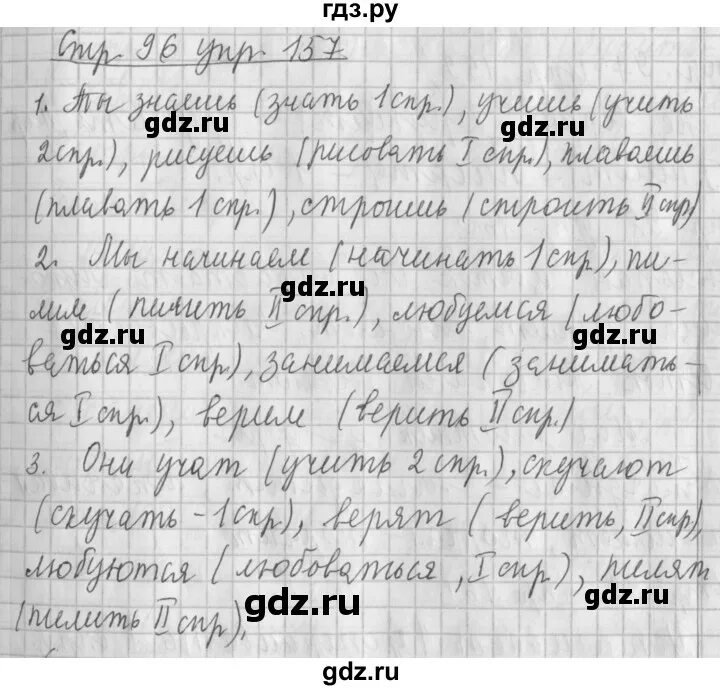 гдз.ру
Стр 96 упр. 157
1. Ты знаешь (знать 1 спр.), учишь (учить
gdz.ru gdz.ru
2 спр.), рисуешь (рисовать I спр.), плаваешь
(плавать 1 спр.), строишь (строить II спр)
2. Мы начинаем (начинать 1 спр), пи-
gdz.ru
лим (пилить II спр.), любуемся (любо-
gdz.ru gdz.ru
ваться I спр.), занимаемся (занимать-
ся I спр.), верим (верить II спр.)
3. Они учат (учить 2 спр.), скучают
gdz.ru
(скучать - 1 спр.), верят (верить, II спр),
любуются (любоваться, I спр.), пилят
gdz.ru gdz.ru
(пилить II спр).
gdz.ru